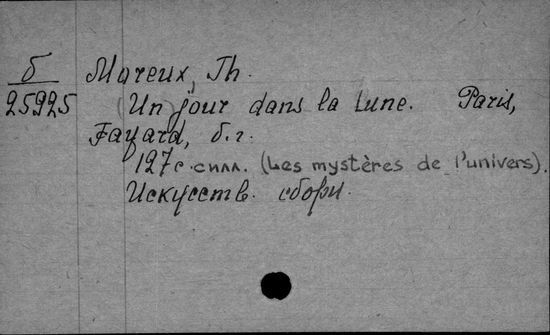 б
25925
Moreux, Th.
(Un) jour dans la Lune. Paris,
Fayard, б.г.
127 с. силл. (Les mystères de l'univers).
Искусств. сборн.